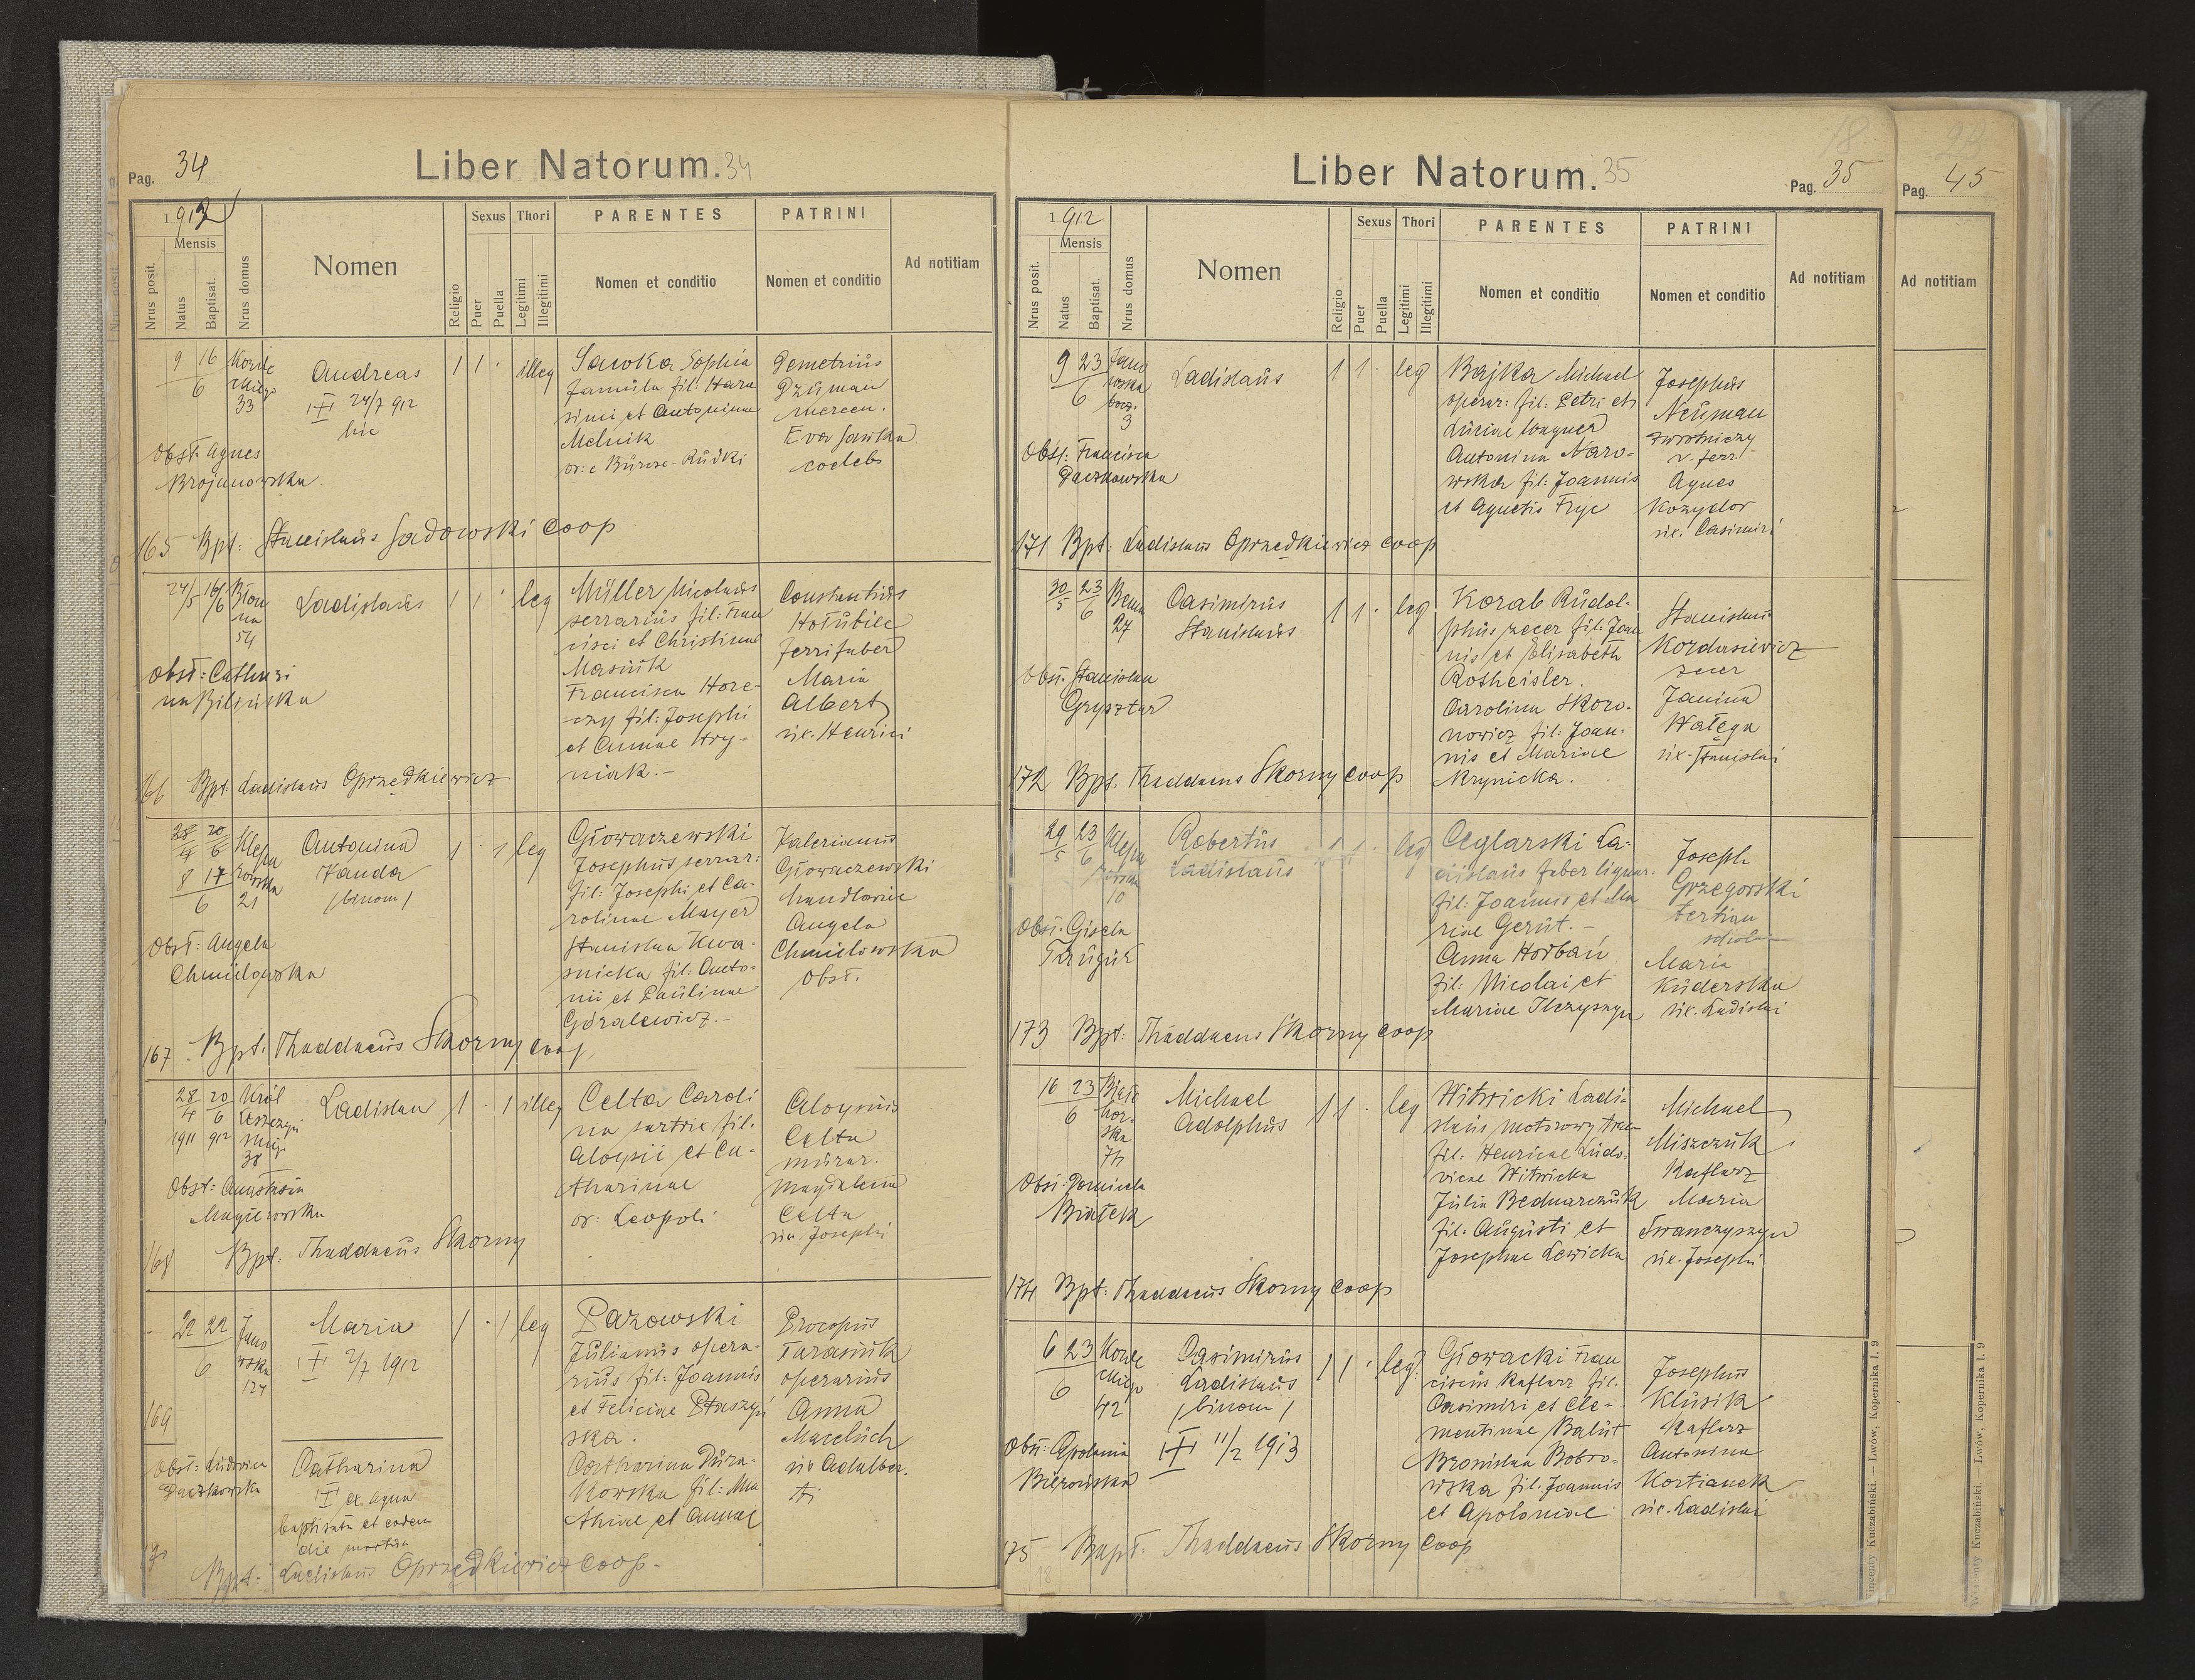 Pag. 34
Liber Natorum. 34
1912
Mensis
Nrus posit.
Natus
Baptisat.
Nrus domus
Nomen
Religio
Sexus
Puer
Puella
Thori
Legitimi
Illegitimi
PARENTES
Nomen et conditio
PATRINI
Nomen et conditio
Ad notitiam
9 16
6
33
Andreas
24/7 912
hic
1 1 · illeg
Sawka Sophia
famula fil: Hara
simi et Antoninae
Melnik
Demetrius
Dziuman
mercen.
Eva Sawka
coelebs
Obst: Agnes
Brojanowska
165 Bpt: Stanislaus Sadowski coop
24/5 16/6 Błon
na
54
Ladislaus
1 1 · leg
Müller Nicolaus
serrarius fil: Fran
cisci et Christinae
Masiuk
Francisca Hore-
czy fil: Josephi
et Annae Hry-
niak.-
Constantius
Hołubiec
ferrifaber
Maria
Albert
ux. Henrici
Obst: Cathari
na Bilińska
166 Bpt: Ladislaus Oprzędkiewicz
28 20
4 6
8 17
6
Klepa
rowska
21
Antonina
Wanda
/binom/
1 · 1 leg
Głowaczewski
Josephus serrar:
fil: Josephi et Ca-
rolinae Mayer
Stanislaa Kwa-
snicka fil: Anto-
nii et Paulinae
Góralewicz.-
Valerianus
Głowaczewski
Angela
Chmielowska
Obst.
Obst: Angela
Chmielowska
167. Bpt. Thaddaeus Skorny coop
28 20
4 6
1911 912
Król
Leszczyń
38
Ladislaa
1 · 1 illeg
Celta Caroli
na sartrix fil.
Aloysii et Ca-
tharinae
or: Leopoli
Aloysius
Celta
murar.
Magdalena
Celta
ux. Josephi
Obst: Anastasia
168 Bpt: Thaddaeus Skorny
22 22
6
Jano
wska
124
Maria
2/7 1912
1 · 1 leg
Pazowski
Julianus opera-
rius fil: Joannis
et Feliciae Ptaszyń
ska.
Catharina Dura-
kowska fil: Ma
thiae et Annae
Procopius
Tarasiuk
operarius
Anna
Maceluch
ux Adalber.
ti
169
Obst: Ludovica
Daczkowska
Catharina
ex aqua
baptisata et eodem
die mortua
170
Bpt: Ladislaus Oprzędkiewicz coop.
Liber Natorum. 35
18
Pag. 35
1912
Mensis
Nrus posit.
Natus
Baptisat.
Nrus domus
Nomen
Religio
Sexus
Puer
Puella
Thori
Legitimi
Illegitimi
PARENTES
Nomen et conditio
PATRINI
Nomen et conditio
Ad notitiam
9 23
6
Jano
wska
3
Ladislaus
1 1 · leg
Bajka Michael
operar: fil: Petri et
Luciae Wagner
Antonina Naro-
wska fil: Joannis
et Agnetis Fryc
Josephus
Neuman
zwrotniczy
v. ferr.
Agnes
Kozydor
ux. Casimiri
Obst: Francisca
Daczkowska
171 Bpt: Ladislaus Oprzędkiewicz coop
30 23
5 6
Bema
27
Casimirus
Stanislaus
1 1 · leg
Korab Rudol-
phus zecer fil: Joan
nis et Elisabeth
Rotheisler.
Carolina Skoro-
nowicz fil: Joan-
nis et Mariae
Krynicka.
Stanislaus
Kordasiewicz
zecer
Janina
Wałęga
ux. Stanislai
Obst: Stanislaa
Grysztar
172 Bpt. Thaddaeus Skorny coop
29 23
5 6
Klepa
rowska
10
Robertus
Ladislaus
1 1 · leg
Ceglarski La-
dislaus faber lignar.
fil: Joannis et Ma
riae Gerut.-
Anna Horbań
fil: Nicolai et
Mariae Ilczyszyn
Joseph
Grzegorski
tertian
Maria
Kuderska
ux. Ladislai
Obst: Gisela
173 Bpt: Thaddaeus Skorny coop
16 23
6
Michael
Adolphus
1 1 · leg
Witwicki Ladi-
slaus motorowy tram
fil: Henricae Ludo-
vicae Witwicka
Julia Bednarczuk
fil: Augusti et
Josephae Lewicka
Michael
Miszczuk
Kaflarz
Maria
Iwanczyszyn
ux. Josephi
Obst: Dominica
Białek
174 Bpt: Thaddaeus Skorny coop
6 23
6
42
Casimirus
Ladislaus
/binom/
11/2 1913
1 1 · leg:
Głowacki Fran
ciscus kaflarz fil.
Casimiri et Cle-
mentinae Bałut
Bronislaa Bobro-
wska fil. Joannis
et Apoloniae
Josephus
Klusik
Kaflarz
Antonina
Kortianek
ux. Ladislai
Obst: Apolonia
175 Bapt. Thaddaeus Skorny Coop
18
Wincenty Kuczabiński. — Lwów, Kopernika l. 9
23
Pag. 45
Ad notitiam
Wincenty Kuczabiński. — Lwów, Kopernika l. 9